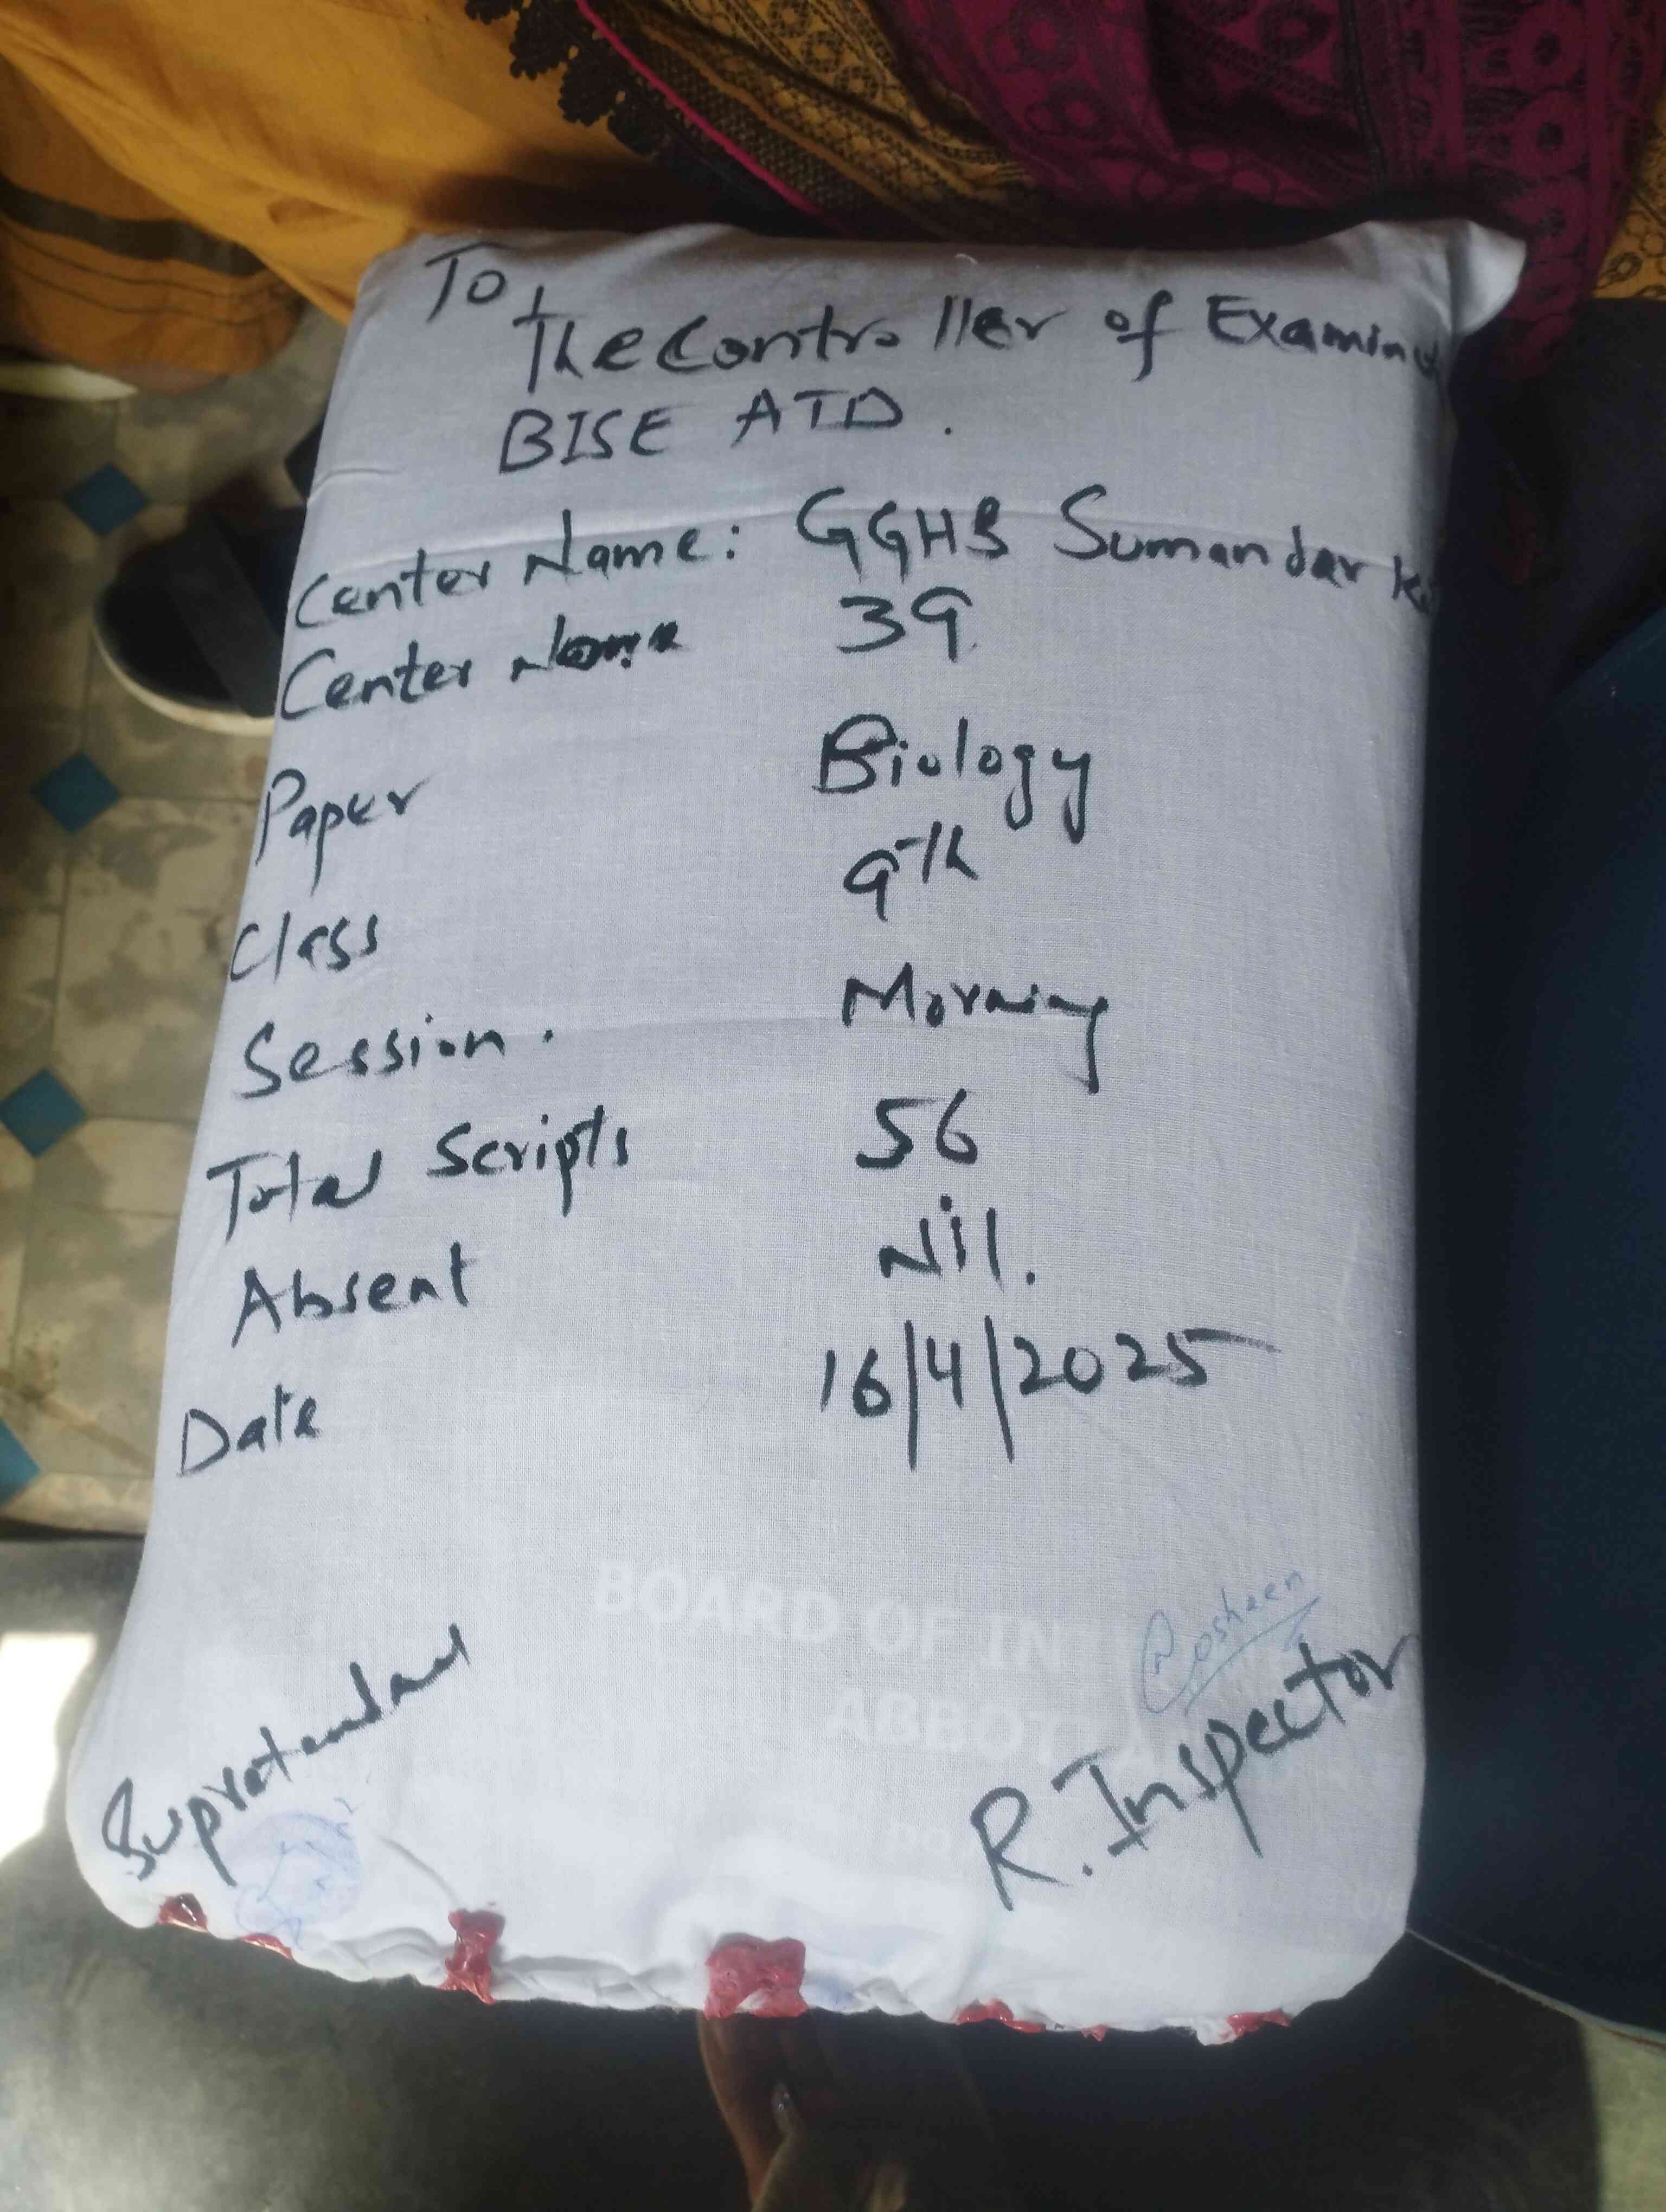 To,
The Controller of Examinat
BISE ATD.
Center Name: GGHS Sumandar
Center 39
Paper Biology
Class 9th
Session. Morning
Total Scripts 56
Absent Nil.
Date 16/4/2025
BOARD OF IN
ABBOT
Supretendant
R. Inspector